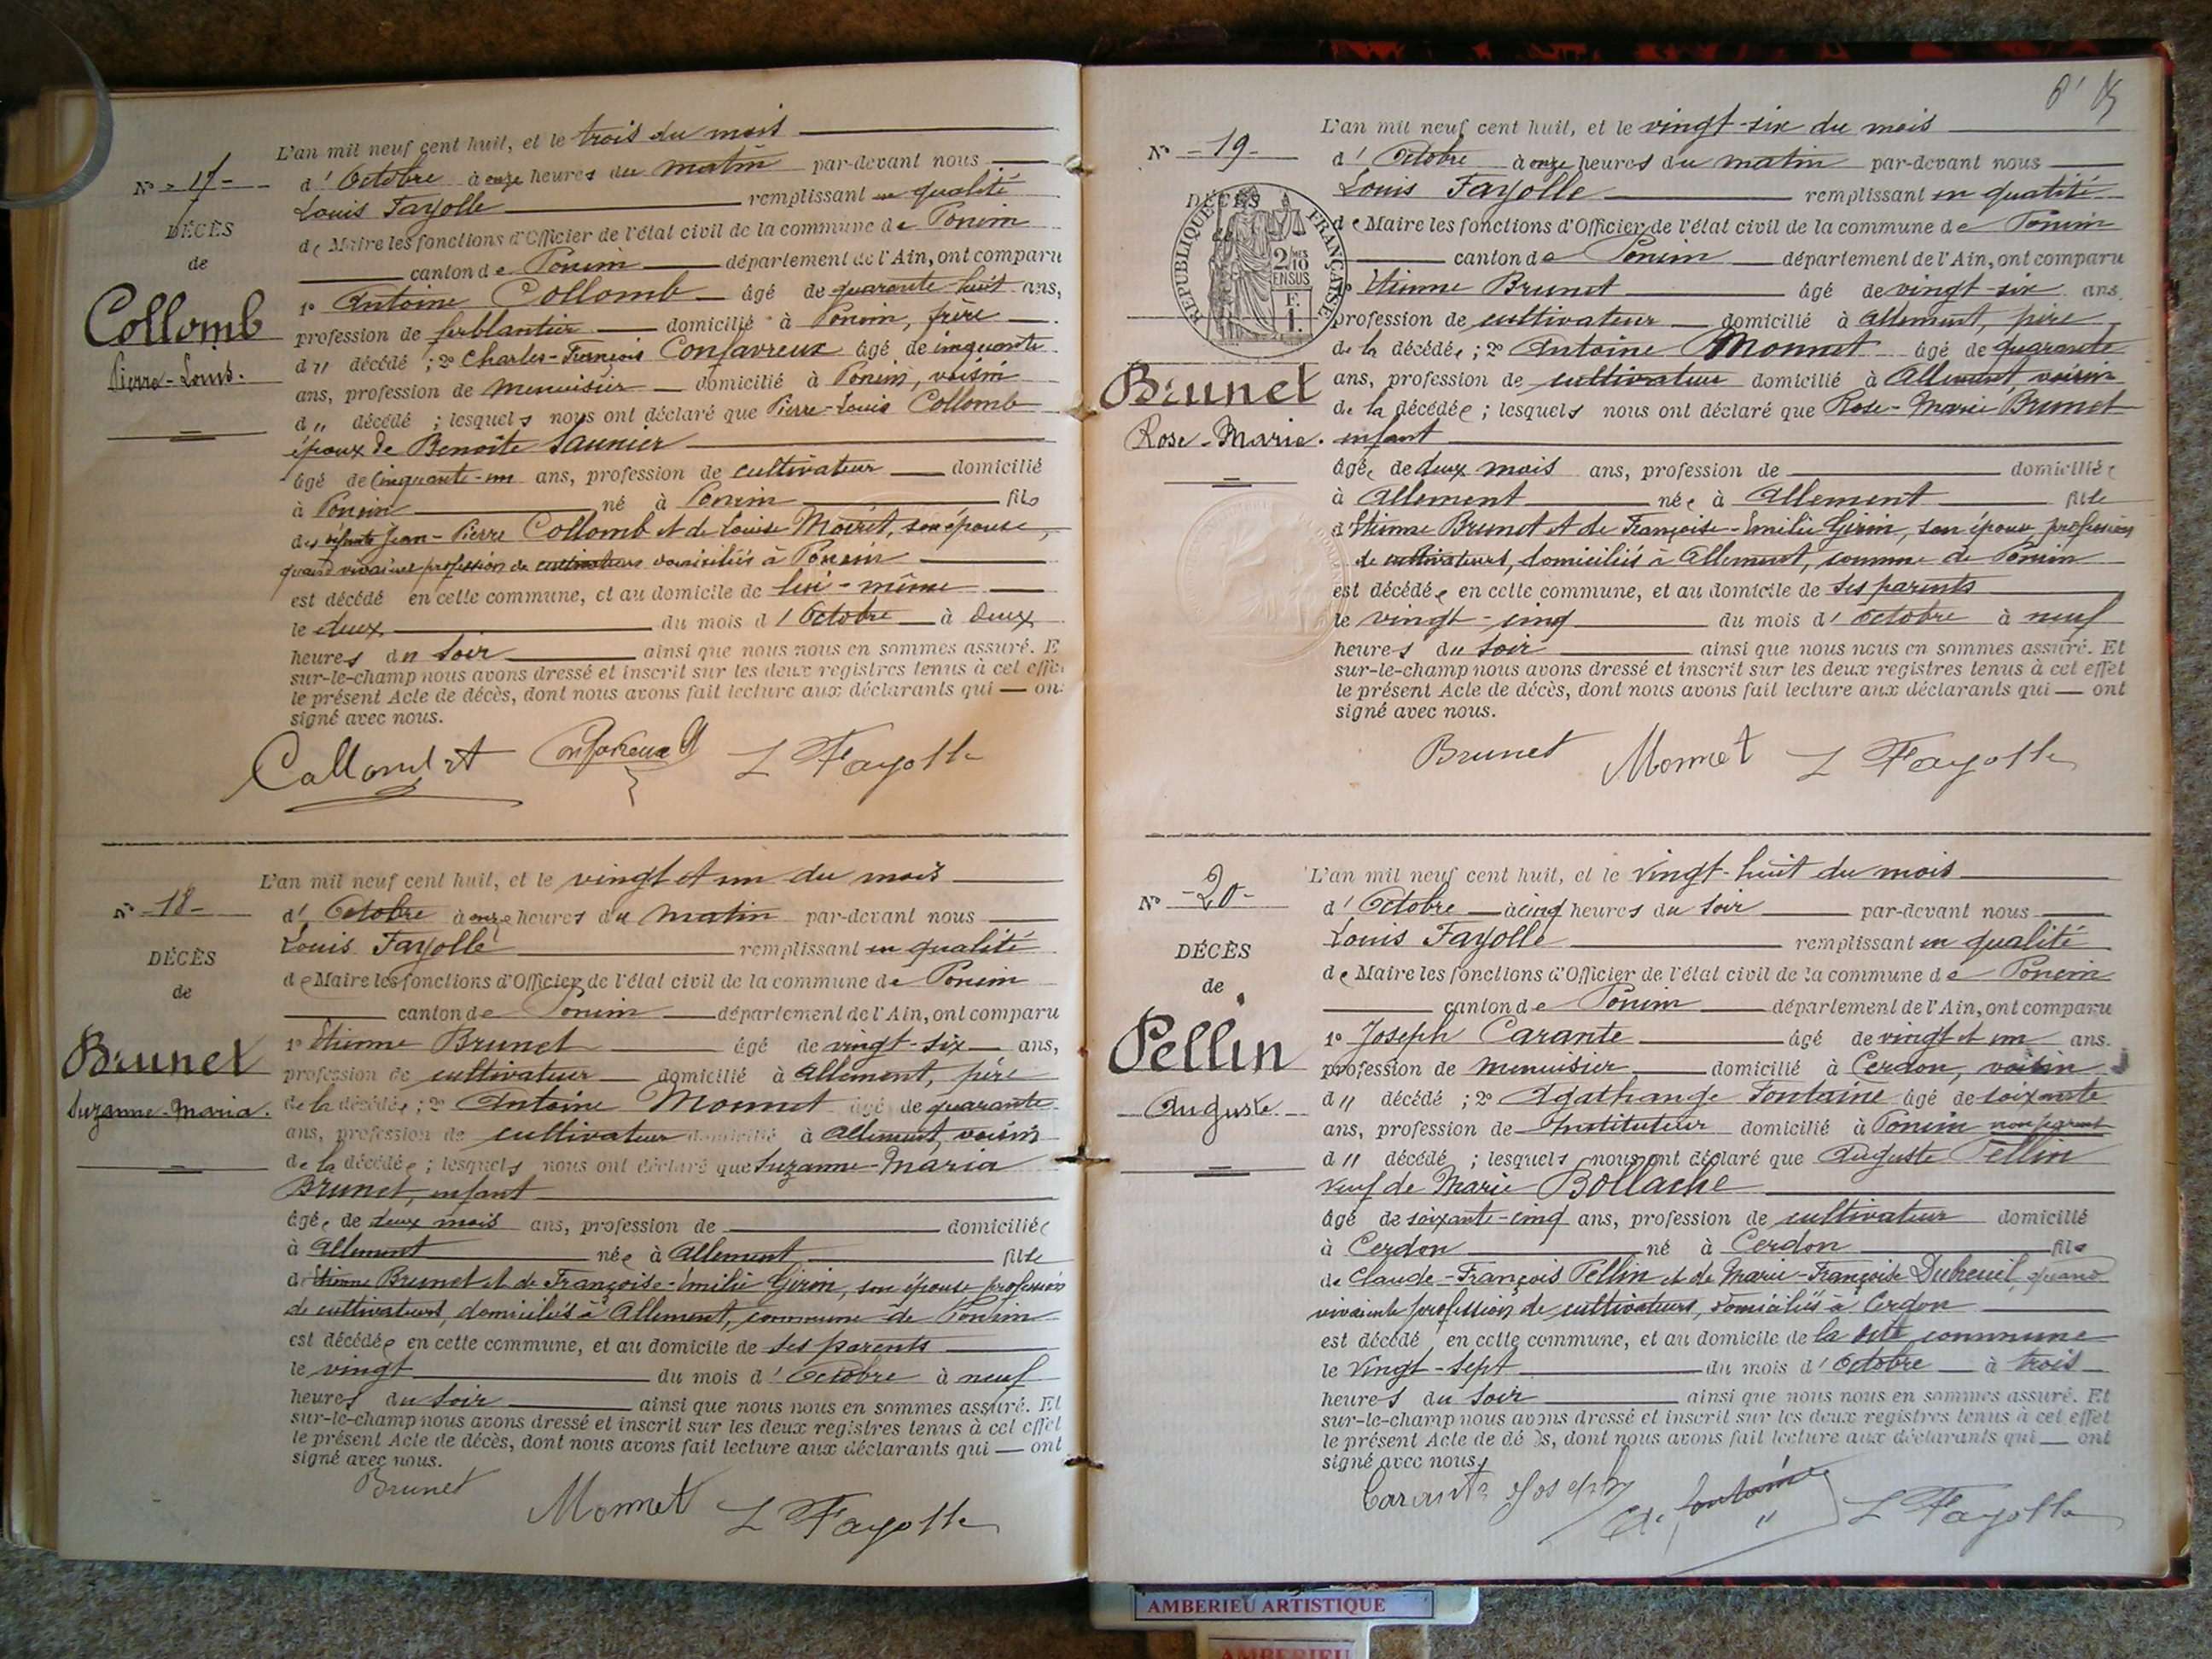 L'an mil neuf cent huit, et le trois du mois
N° - 17 -
d'Octobre à onze heures du matin par-devant nous
Louis Fayolle remplissant en qualité
DÉCÈS
de Maire les fonctions d'Officier de l'état civil de la commune de Poncin
de
canton de Poncin département de l'Ain, ont comparu
Collomb
1° Antoine Collomb âgé de quarante-huit ans,
profession de ferblantier domicilié à Poncin, frère
Pierre-Louis.
d" décédé ; 2° Charles-François Confavreux âgé de cinquante
ans, profession de menuisier domicilié à Poncin, voisin
d" décédé ; lesquels nous ont déclaré que Pierre-Louis Collomb
époux de Benoîte Saunier
âgé de cinquante-un ans, profession de cultivateur domicilié
à Poncin né à Poncin fils
des défunts Jean-Pierre Collomb et de Louise Moiret, son épouse,
quand vivaient profession de cultivateurs domiciliés à Poncin
est décédé en cette commune, et au domicile de lui-même
le deux du mois d'Octobre à deux
heures du soir ainsi que nous nous en sommes assuré. E
sur-le-champ nous avons dressé et inscrit sur les deux registres tenus à cet effe
le présent Acte de décès, dont nous avons fait lecture aux déclarants qui ont
signé avec nous.
Confavreux L Fayolle
L'an mil neuf cent huit, et le vingt et un du mois
N° - 18 -
d'Octobre à onze heures du matin par-devant nous
Louis Fayolle remplissant en qualité
DÉCÈS
de Maire les fonctions d'Officier de l'état civil de la commune de Poncin
de
canton de Poncin département de l'Ain, ont comparu
Brunet
1° Etienne Brunet âgé de vingt-six ans,
profession de cultivateur domicilié à Allement, père
Suzanne-Maria.
de la décédée ; 2° Antoine Monnet âgé de quarante
ans, profession de cultivateur domicilié à Allement, voisin
de la décédée ; lesquels nous ont déclaré que Suzanne-Maria
Brunet, enfant
âgée de deux mois ans, profession de domiciliée
à Allement née à Allement fille
d'Etienne Brunet et de Françoise-Emilie Girin, son épouse profession
de cultivateurs, domiciliés à Allement, commune de Poncin
est décédée en cette commune, et au domicile de ses parents
le vingt du mois d'Octobre à neuf
heures du soir ainsi que nous nous en sommes assuré. Et
sur-le-champ nous avons dressé et inscrit sur les deux registres tenus à cet effet
le présent Acte de décès, dont nous avons fait lecture aux déclarants qui ont
signé avec nous.
Brunet Monnet L Fayolle
L'an mil neuf cent huit, et le vingt-six du mois
N° - 19 -
d'Octobre à onze heures du matin par-devant nous
Louis Fayolle remplissant en qualité
DÉCÈS
RÉPUBLIQUE FRANÇAISE
2/10 EN SUS
F. 1.
de Maire les fonctions d'Officier de l'état civil de la commune de Poncin
canton de Poncin département de l'Ain, ont comparu
1° Etienne Brunet âgé de vingt-six ans,
profession de cultivateur domicilié à Allement, père
de la décédée ; 2° Antoine Monnet âgé de quarante
Brunet
ans, profession de cultivateur domicilié à Allement, voisin
de la décédée ; lesquels nous ont déclaré que Rose-Marie Brunet
Rose-Marie.
enfant
âgée de deux mois ans, profession de domiciliée
à Allement née à Allement fille
d'Etienne Brunet et de Françoise-Emilie Girin, son épouse, profession
de cultivateurs, domiciliés à Allement, commune de Poncin
est décédée en cette commune, et au domicile de ses parents
le vingt-cinq du mois d'Octobre à neuf
heures du soir ainsi que nous nous en sommes assuré. Et
sur-le-champ nous avons dressé et inscrit sur les deux registres tenus à cet effet
le présent Acte de décès, dont nous avons fait lecture aux déclarants qui ont
signé avec nous.
Brunet Monnet L Fayolle
L'an mil neuf cent huit, et le vingt-huit du mois
N° - 20 -
d'Octobre à cinq heures du soir par-devant nous
Louis Fayolle remplissant en qualité
DÉCÈS
de Maire les fonctions d'Officier de l'état civil de la commune de Poncin
de
canton de Poncin département de l'Ain, ont comparu
Pellin
1° Joseph Carante âgé de vingt et un ans.
profession de menuisier domicilié à Cerdon, voisin
Auguste.
d" décédé ; 2° Agathange Fontaine âgé de soixante
ans, profession de Instituteur domicilié à Poncin non parent
d" décédé ; lesquels nous ont déclaré que Auguste Pellin
veuf de Marie Bollache
âgé de soixante-cinq ans, profession de cultivateur domicilié
à Cerdon né à Cerdon fils
de Claude-François Pellin et de Marie-Françoise Dubreuil, quand
vivaient profession de cultivateurs, domiciliés à Cerdon
est décédé en cette commune, et au domicile de la dite commune
le vingt-sept du mois d'Octobre à trois
heures du soir ainsi que nous nous en sommes assuré. Et
sur-le-champ nous avons dressé et inscrit sur les deux registres tenus à cet effet
le présent Acte de décès, dont nous avons fait lecture aux déclarants qui ont
signé avec nous.
Carante Joseph A. Fontaine L Fayolle
AMBERIEU ARTISTIQUE
AMBERIEU